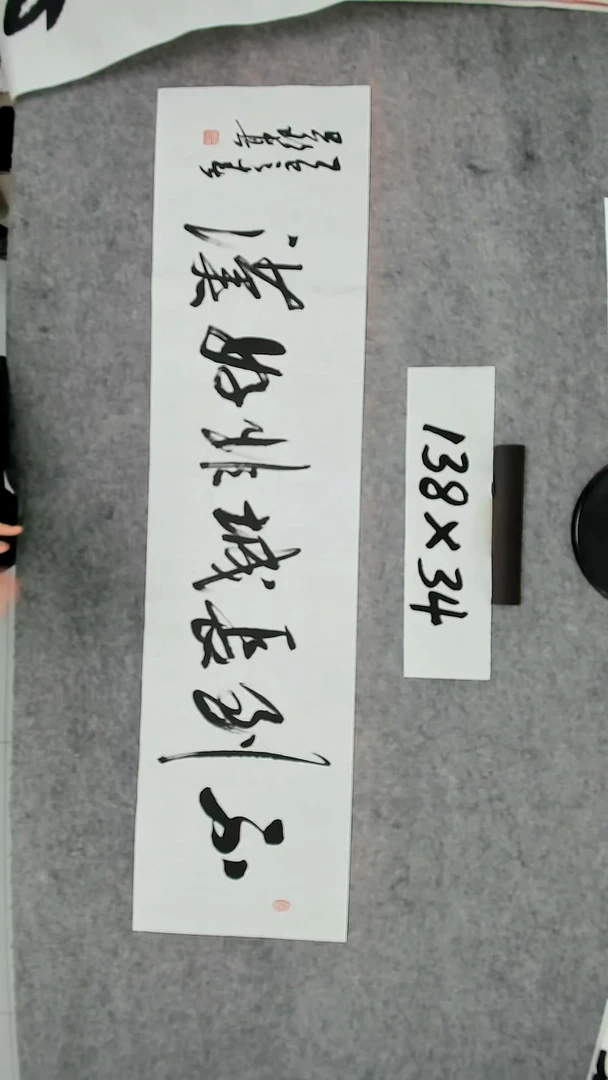 不到長城非好漢
138×34